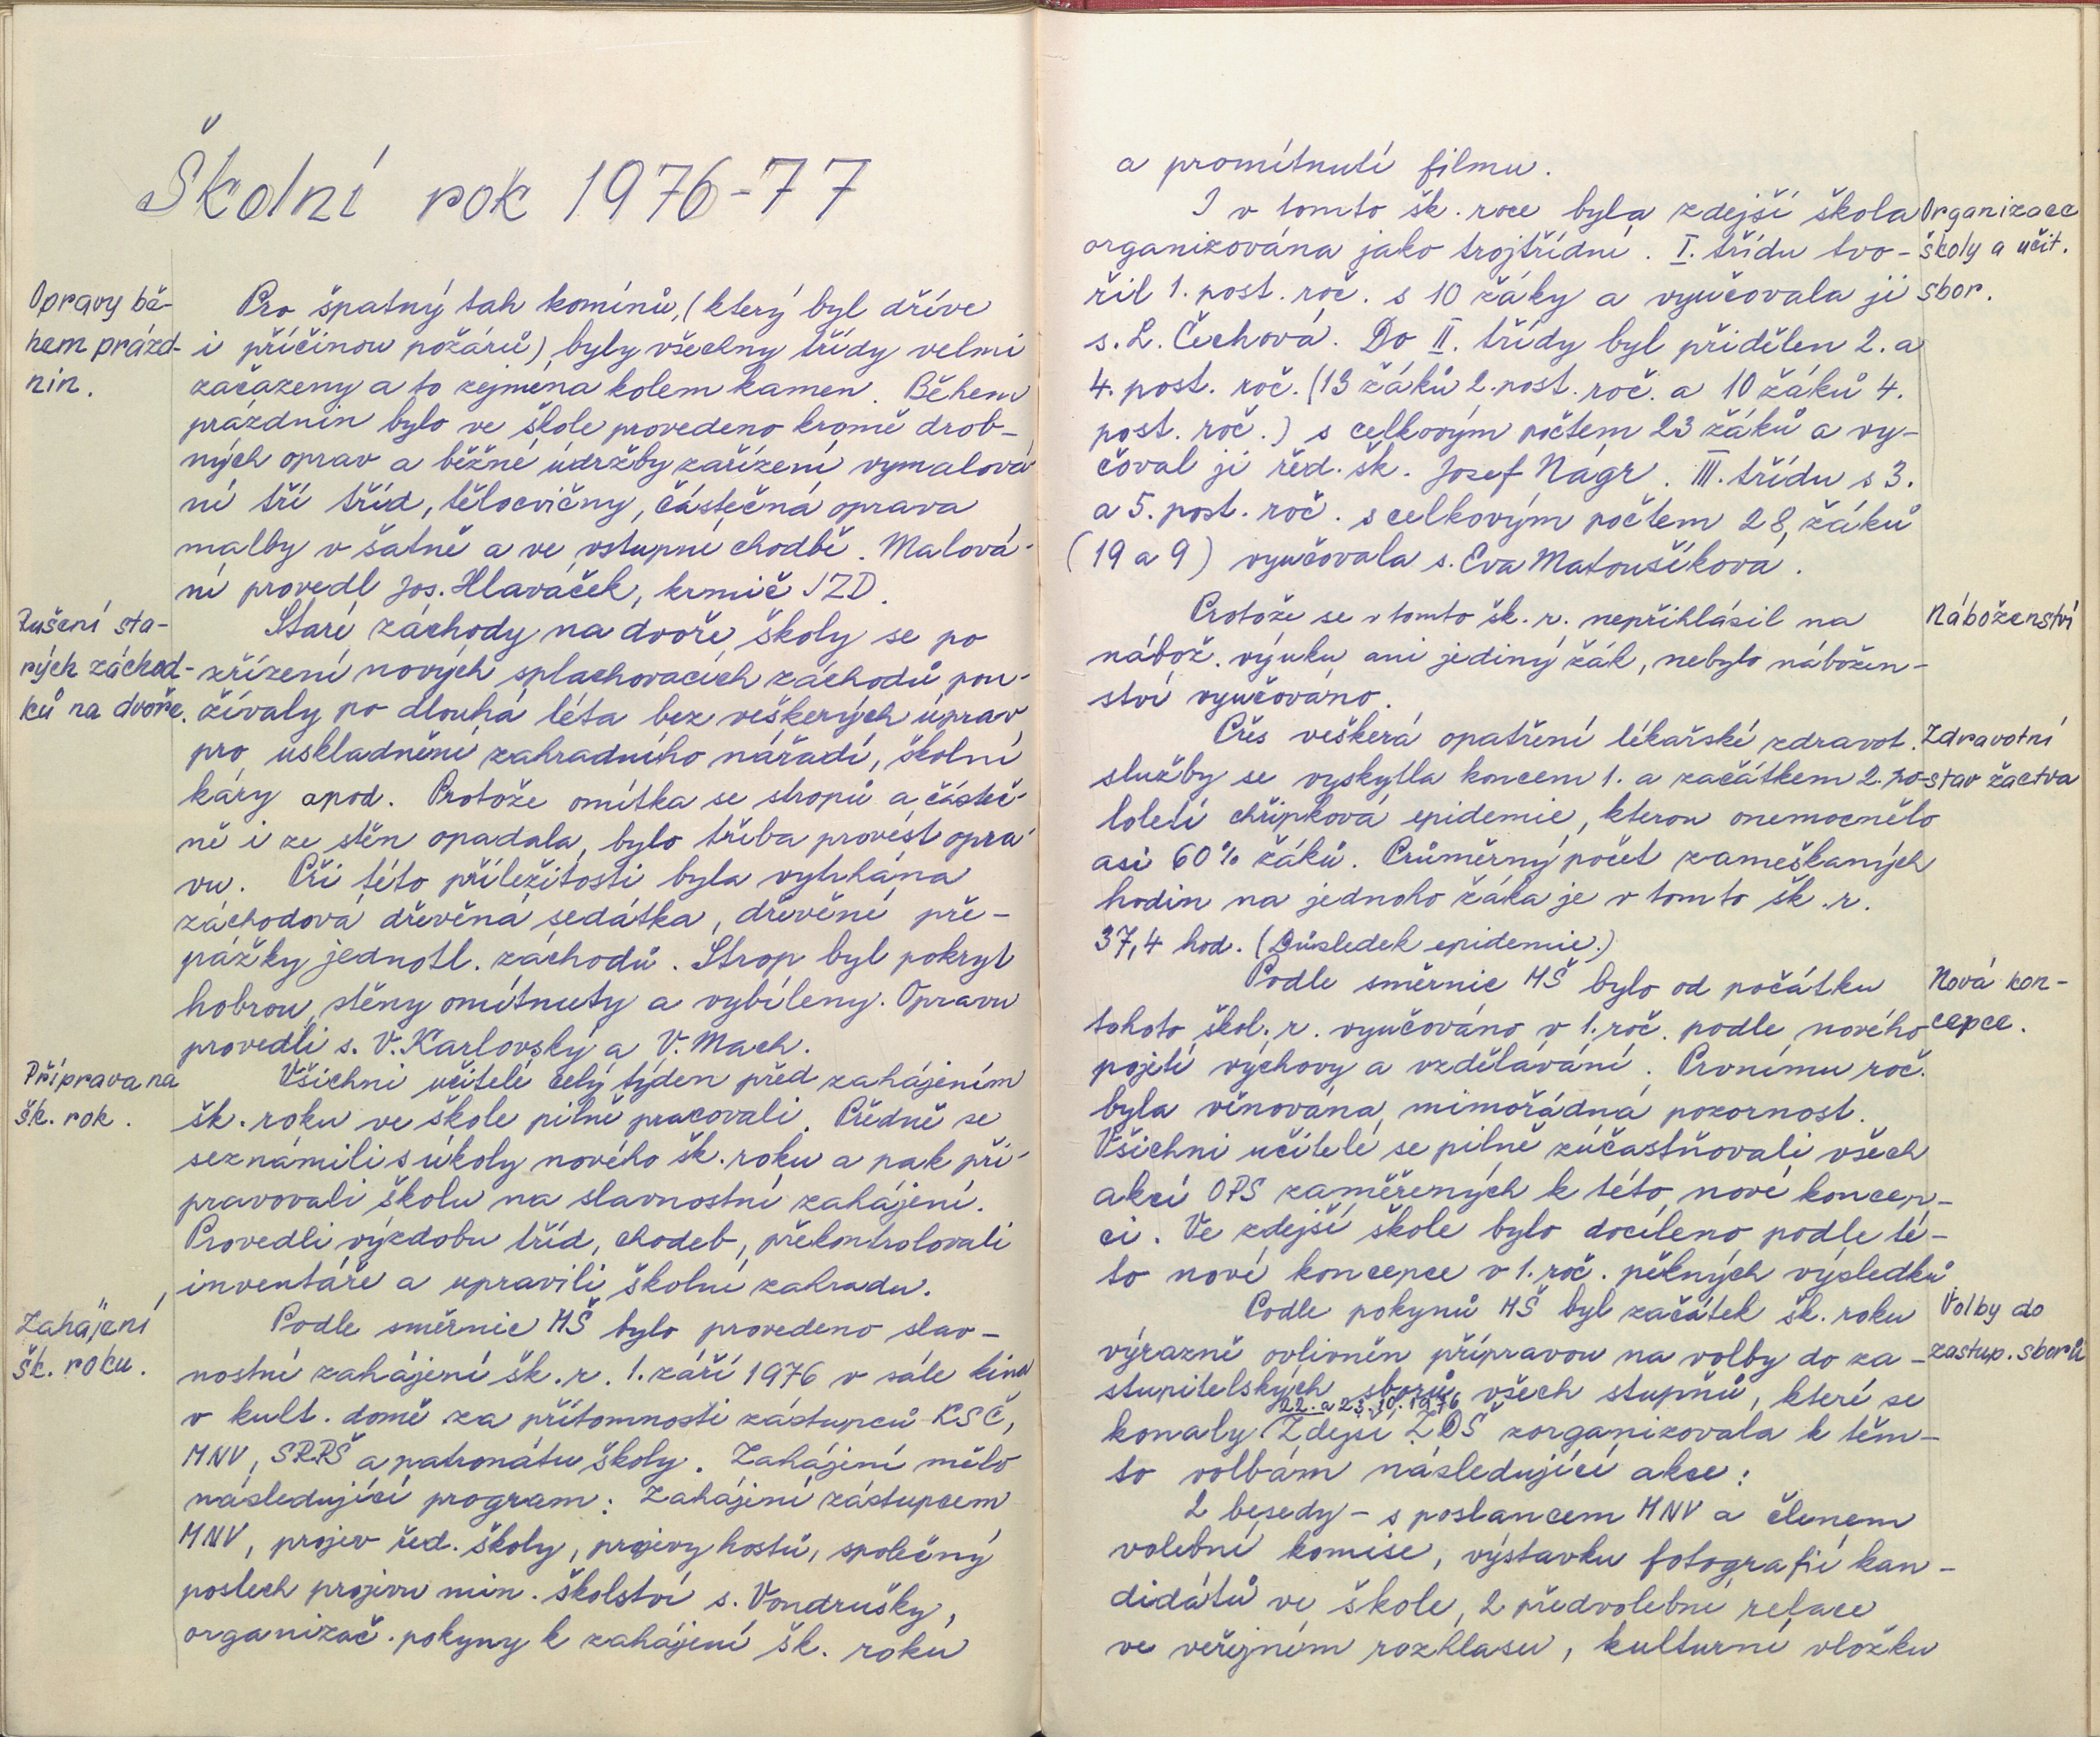 Školní rok 1976-77
Opravy bě-
hem prázd-
nin.
Pro špatný tah komínů, (který byl dříve
i příčinou požárů) byly všechny třídy velmi
začazeny a to zejména kolem kamen. Během
prázdnin bylo ve škole provedeno kromě drob-
ných oprav a běžné údržby zařízení vymalová-
ní tří tříd, tělocvičny, částečná oprava
malby v šatně a ve vstupní chodbě. Malová-
ní provedl Jos. Hlaváček, krmič JZD.
Zušení sta-
rých záchod-
ků na dvoře.
Staré záchody na dvoře školy se po
zřízení nových splachovacích záchodů pou-
žívaly po dlouhá léta bez veškerých úprav
pro uskladnění zahradního nářadí, školní
káry apod. Protože omítka se stropů a částeč-
ně i ze stěn opadala, bylo třeba provést opra-
vu. Při této příležitosti byla vytrhána
záchodová dřevěná sedátka, dřevěné pře-
pážky jednotl. záchodů. Strop byl pokryt
hobrou, stěny omítnuty a vybíleny. Opravu
provedli s. V. Karlovský a V. Mach.
Příprava na
šk. rok.
Všichni učitelé celý týden před zahájením
šk. roku ve škole pilně pracovali. Předně se
seznámili s úkoly nového šk. roku a pak při-
pravovali školu na slavnostní zahájení.
Provedli výzdobu tříd, chodeb, překontrolovali
inventáře a upravili školní zahradu.
Zahájení
šk. roku.
Podle směrnic MŠ bylo provedeno slav-
nostní zahájení šk. r. 1. září 1976 v sále kina
v kult. domě za přítomnosti zástupců KSČ,
MNV, SRPŠ a patronátu školy. Zahájení mělo
následující program: Zahájení zástupcem
MNV, projev řed. školy, projevy hostů, společný
poslech projevu min. školství s. Vondrušky,
organizač. pokyny k zahájení šk. roku
a promítnutí filmu.
I v tomto šk. roce byla zdejší škola
organizována jako trojtřídní. I. třídu tvo-
řil 1. post. roč. s 10 žáky a vyučovala ji
s. L. Čechová. Do II. třídy byl přidělen 2. a
4. post. roč. (13 žáků 2. post. roč. a 10 žáků 4.
post. roč.) s celkovým počtem 23 žáků a vy-
čoval ji řed. šk. Josef Nágr. III. třídu s 3.
a 5. post. roč. s celkovým počtem 28 žáků
(19 a 9) vyučovala s. Eva Matoušíková.
Organizace
školy a učit.
sbor.
Protože se v tomto šk. r. nepřihlásil na
nábož. výuku ani jediný žák, nebylo nábožen-
ství vyučováno.
Náboženství
Přes veškerá opatření lékařské zdravot.
služby se vyskytla koncem 1. a začátkem 2. po-
loletí chřipková epidemie, kterou onemocnělo
asi 60% žáků. Průměrný počet zameškaných
hodin na jednoho žáka je v tomto šk. r.
37,4 hod. (Důsledek epidemie.)
Zdravotní
stav žactva
Podle směrnic MŠ bylo od počátku
tohoto škol. r. vyučováno v 1. roč. podle nového
pojetí výchovy a vzdělávání. Prvnímu roč.
byla věnována mimořádná pozornost.
Všichni učitelé se pilně zúčastňovali všech
akcí OPS zaměřených k této nové koncep-
ci. Ve zdejší škole bylo docíleno podle té-
to nové koncepce v 1. roč. pěkných výsledků.
Nová kon-
cepce.
Podle pokynů MŠ byl začátek šk. roku
výrazně ovlivněn přípravou na volby do za-
stupitelských sborů všech stupňů, které se
22. a 23. 10. 1976
konaly. Zdejší ZDŠ zorganizovala k těm-
to volbám následující akce:
2 besedy - s poslancem MNV a členem
volební komise, výstavku fotografií kan-
didátů ve škole, 2 předvolební relace
ve veřejném rozhlasu, kulturní vložku
Volby do
zastup. sborů